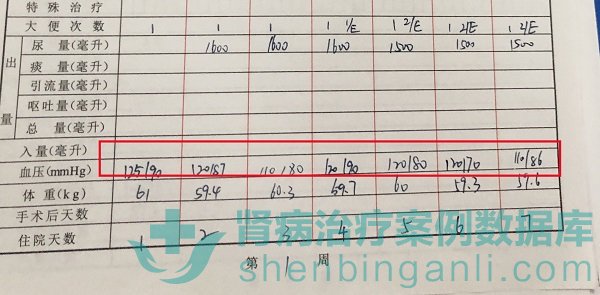 特殊治疗
大便次数 1 1 1 1 1/E 1 2/E 1 2/E 1 2/E
出量
尿 量(毫升) 1600 1600 1600 1500 1500 1500
痰 量(毫升)
引流量(毫升)
呕吐量(毫升)
总 量(毫升)
入量(毫升)
血压(mmHg) 125/90 120/87 110/80 120/90 120/80 120/70 110/86
体 重(kg) 61 59.4 60.3 59.7 60 59.3 59.6
手术后天数
住院天数 1 2 3 4 5 6 7
第 1 周
肾病治疗案例数据库
shenbinganli.com